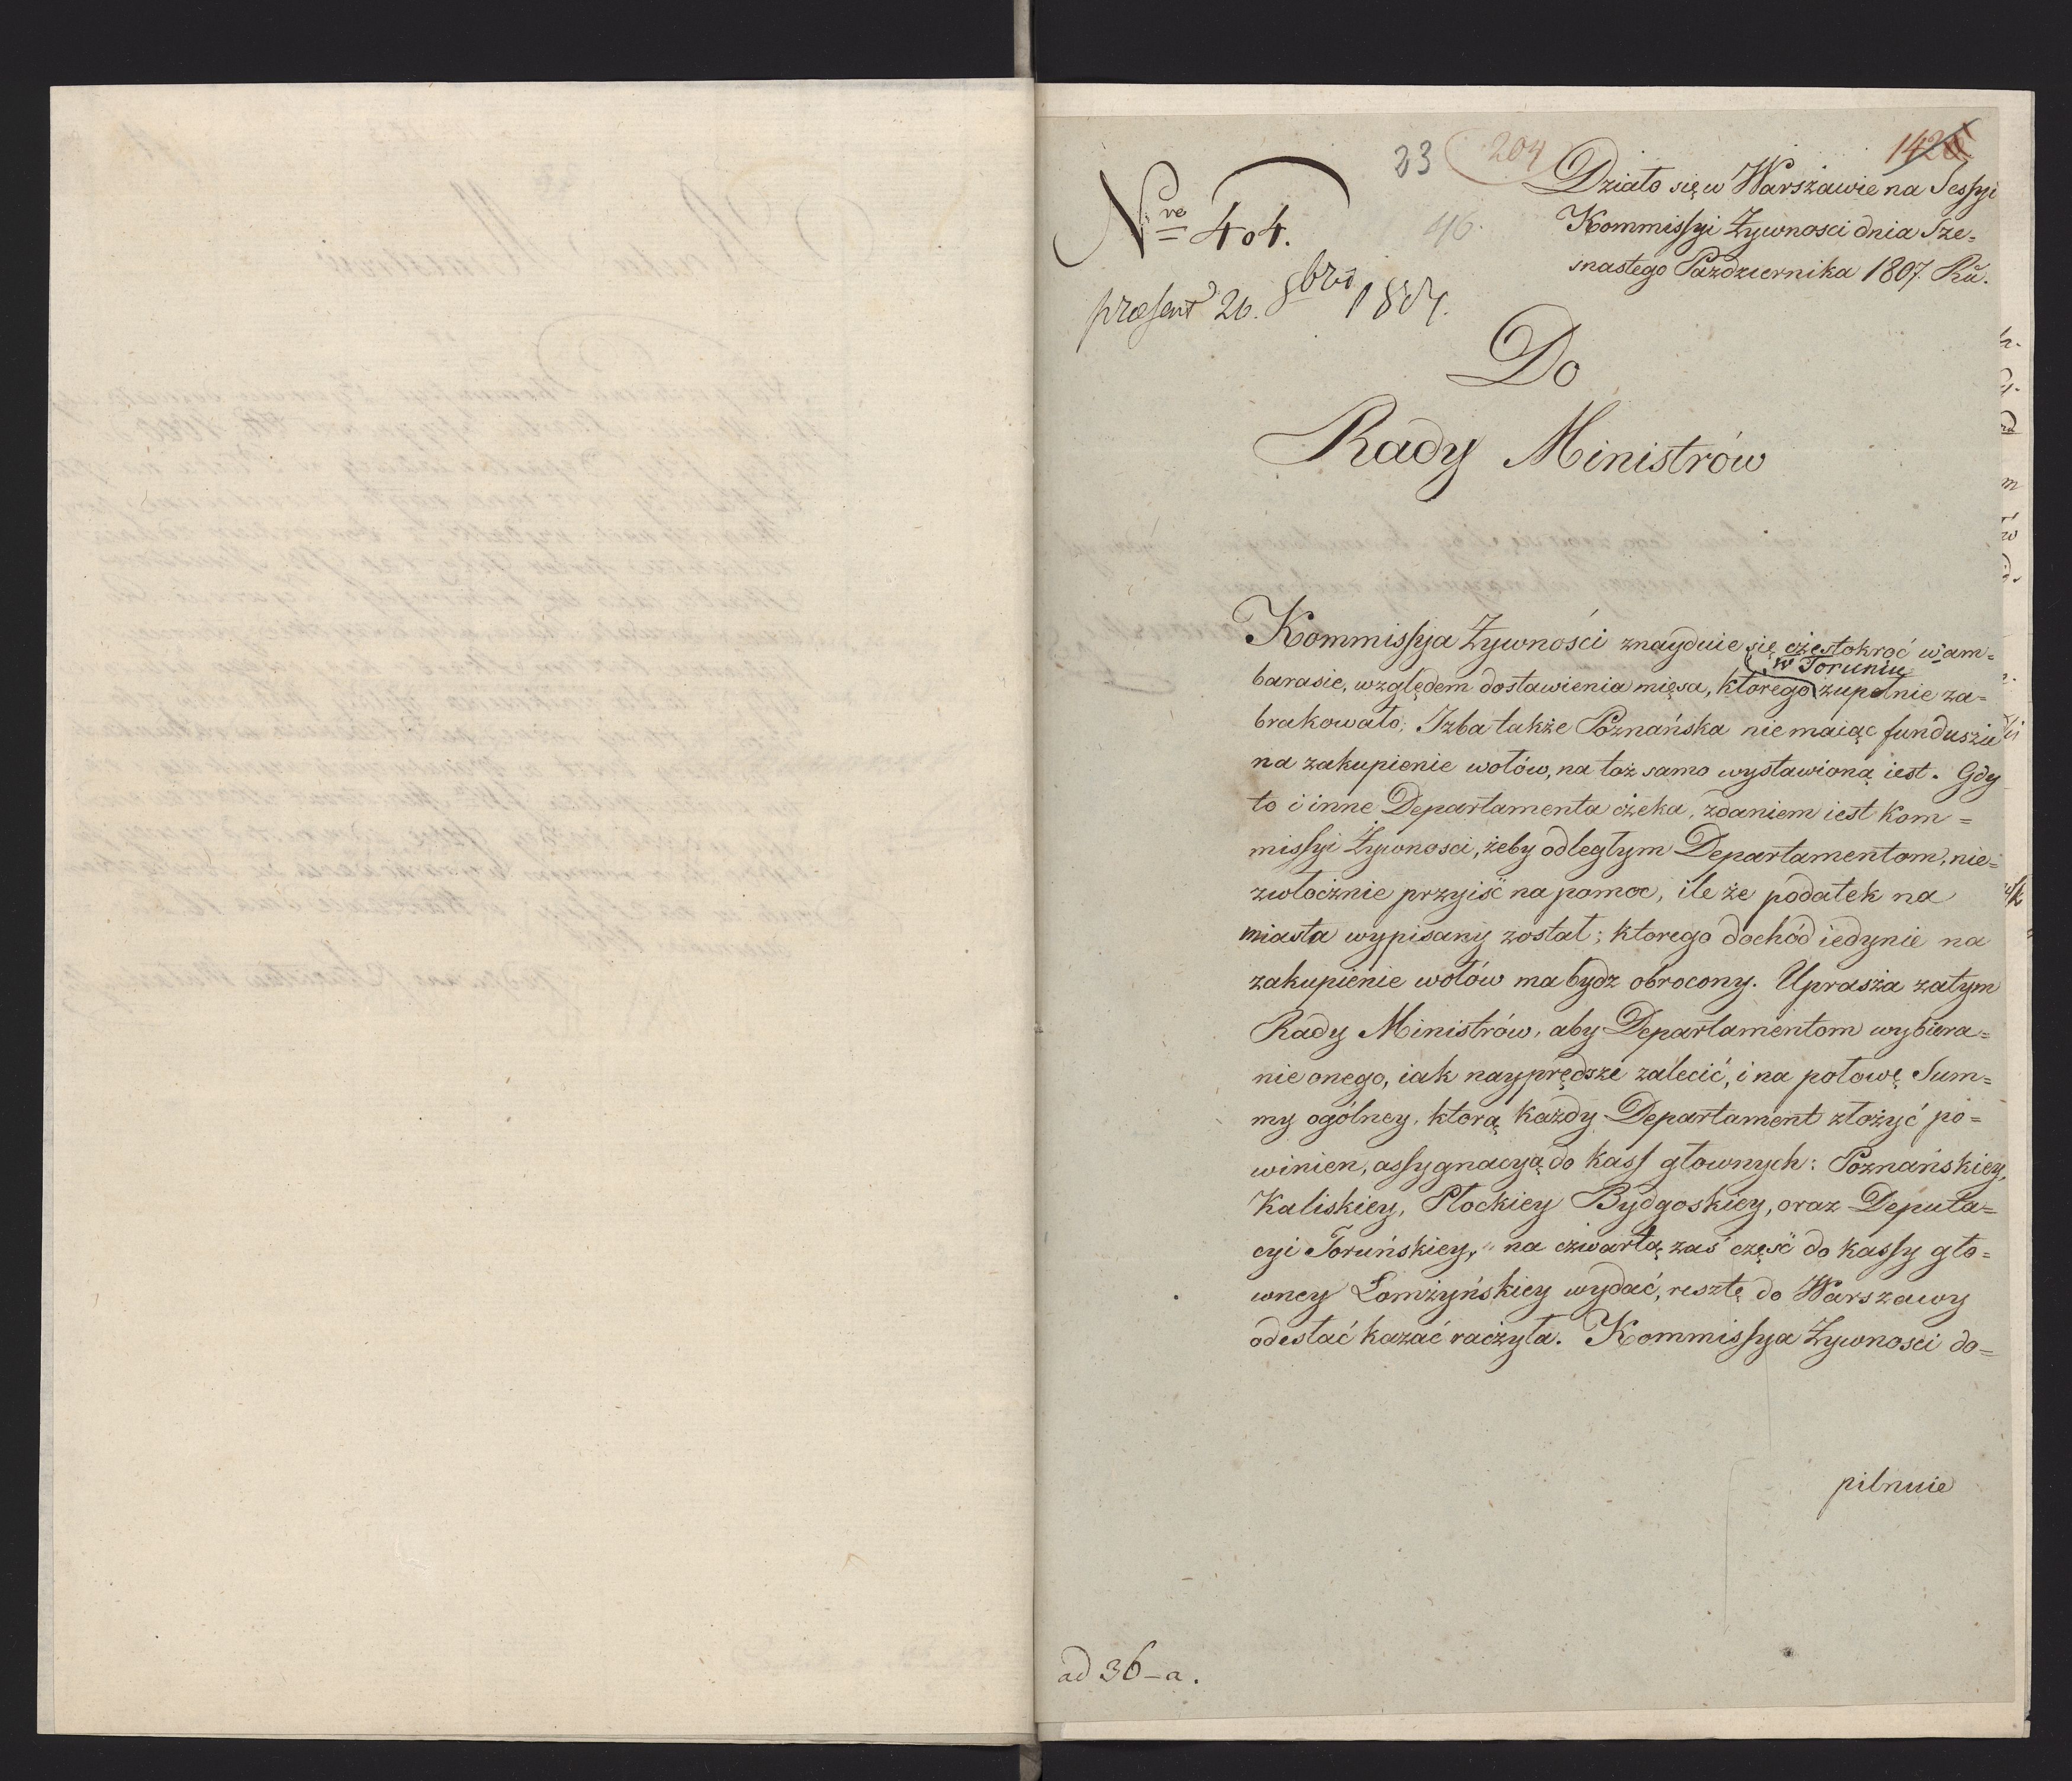 23 204 1426
Nro 404.
46.
Działo się w Warszawie na Sessyi
Kommissyi Żywnosci dnia Sze=
snastego Pazdziernika 1807. Ru.
præsent 26. 8bris 1807.
Do
Rady Ministrów
Kommissyja Żywności znayduie się częstokroć w am=
w Toruniu
barasie, względem dostawienia mięsa, ktorego zupełnie za=
brakowało; Izba także Poznańska nie maiąc funduszu
na zakupienie wołów, na toż samo wystawioną iest. Gdy
to i inne Departamenta czeka, zdaniem iest Kom=
missyi Żywnosci, żeby odległym Departamentom, nie=
zwłocznie przyiść na pomoc, ile że podatek na
miasta wypisany został; ktorego dochód iedynie na
zakupienie wołów ma bydz obrocony. Uprasza zatym
Rady Ministrów, aby Departamentom wybiera=
nie onego, iak nayprędsze zalecić, i na połowę Sum=
my ogólney, ktorą każdy Departament złożyć po=
winien, assygnacyą do kass głownych: Poznańskiey,
Kaliskiey, Płockiey Bydgoskiey, oraz Deputa=
cyi Toruńskiey, na czwartą zaś część do kassy gło=
wney Łomżyńskiey wydać, resztę do Warszawy
odesłać kazać raczyła. Kommissya Żywnosci do=
pilnuie
ad 36-a.